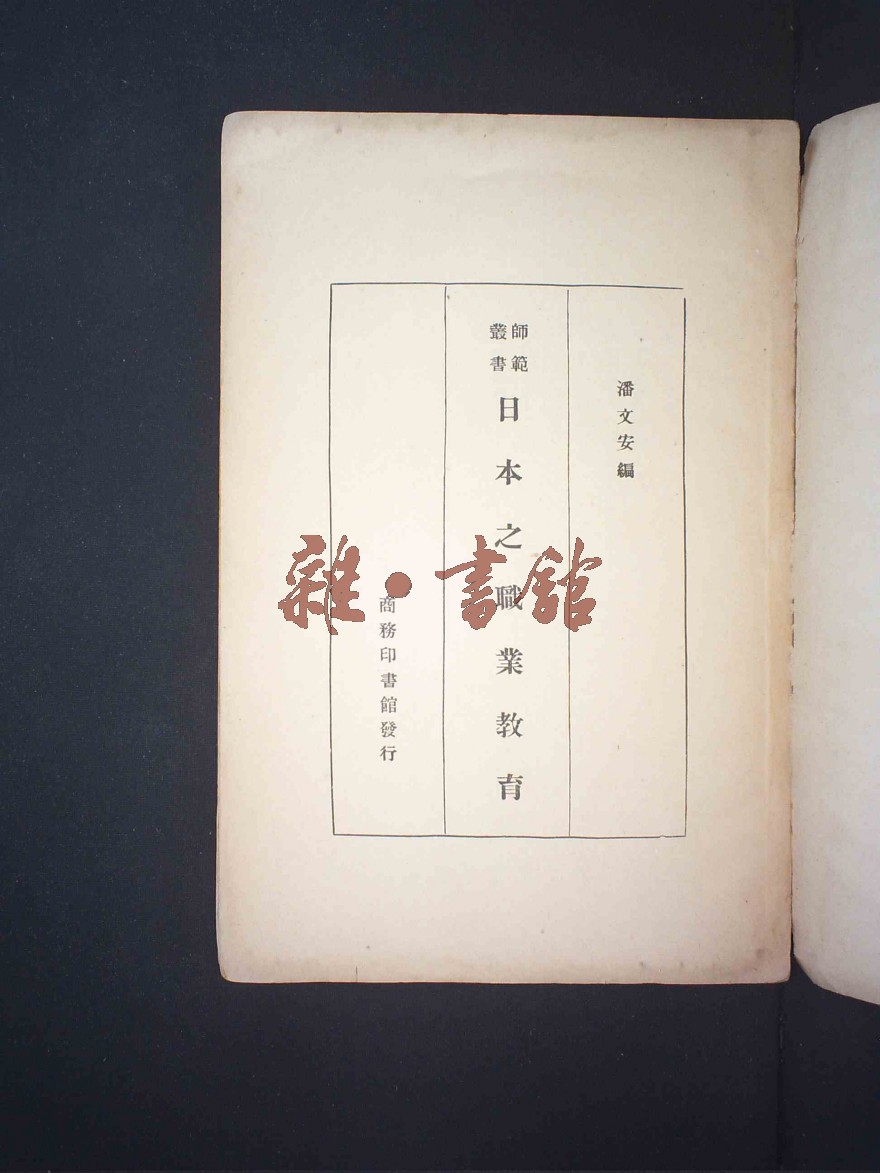 潘文安編
師範
叢書
日本之職業教育
商務印書館發行
雜·書館